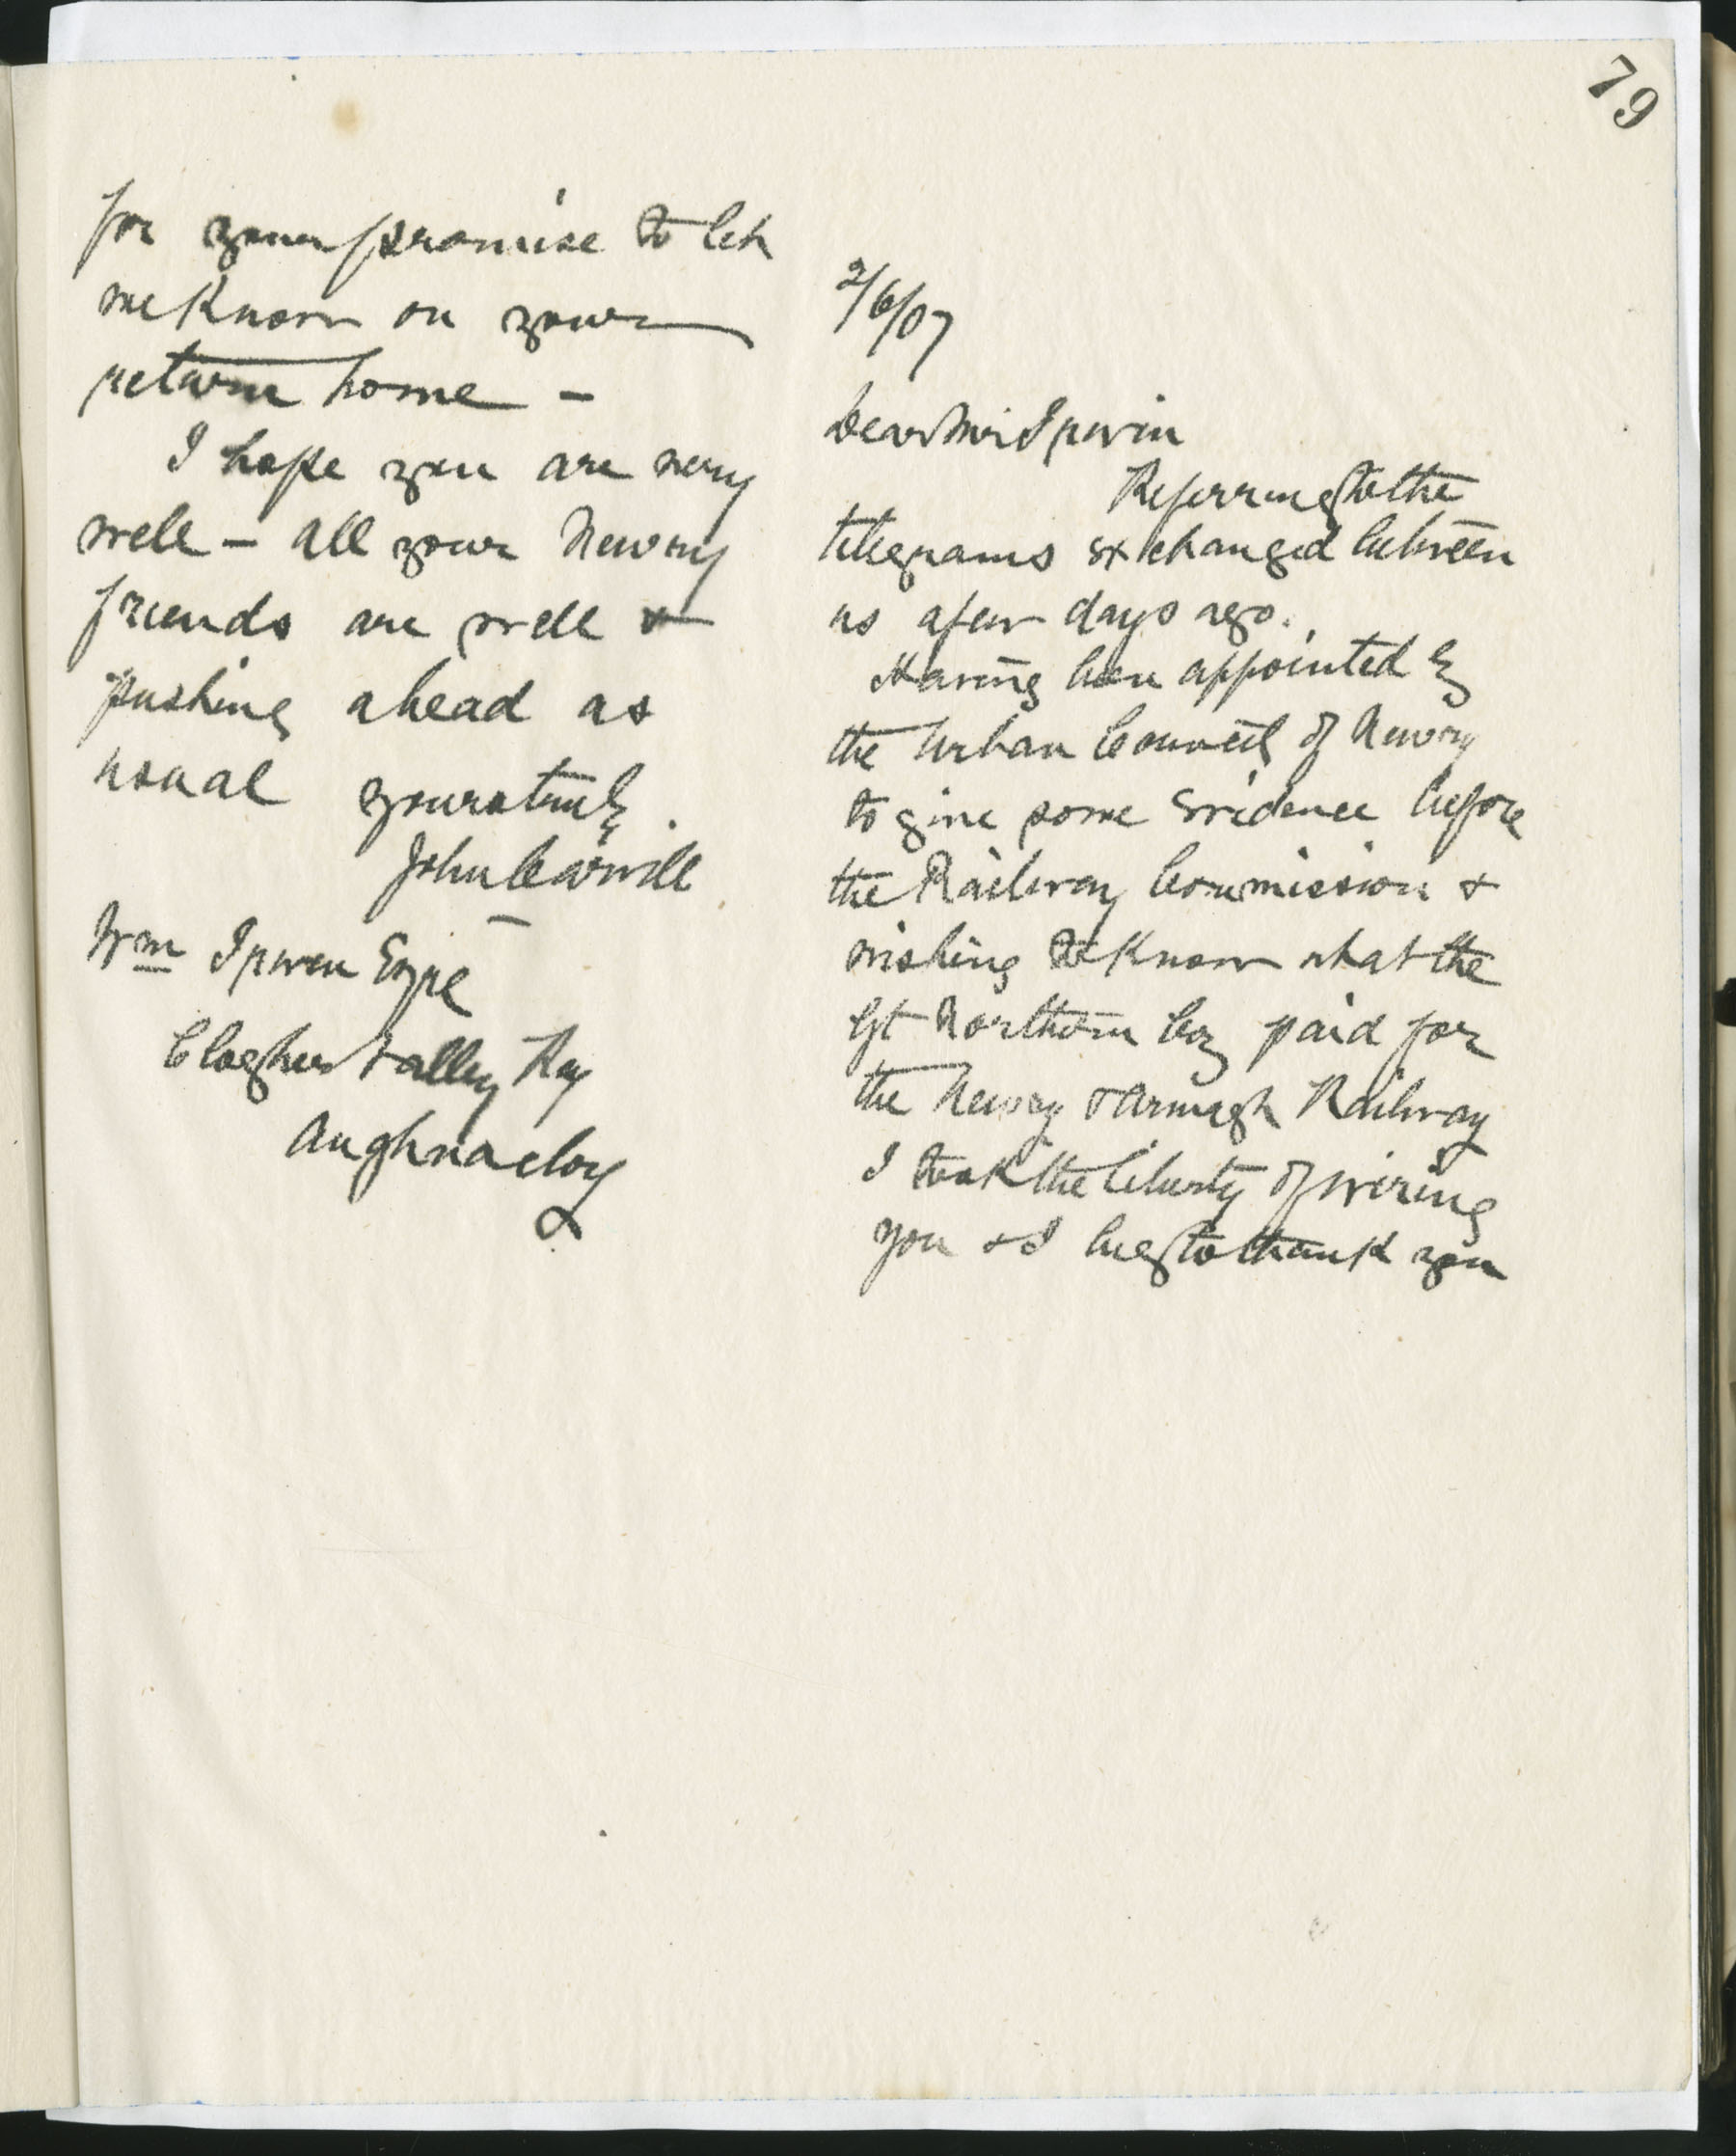 79
2/6/07
Dear Mr Irwin
Referring to the
telegrams exchanged between
us a few days ago.
Having been appointed by
the Urban Council of Newry
to give some evidence before
the Railway Commission &
wishing to know what the
Gt Northern Coy paid for
the Newry & Armagh Railway
I took the liberty of wiring
you & I beg to thank you
for your promise to let
me know on your
return home -
I hope you are very
well - all your Newry
friends are well &
pushing ahead as
usual yours truly.
John Carvill
Wm Irwin Esqre
Clogher Valley Ry
Aughnacloy